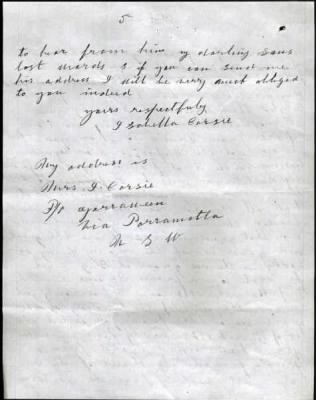 5
to hear from him my darling sons
last words & if you can send me
his address I will be very much obliged
to you indeed
yours respectfuly
Isabella Corsie
My address is
Mrs I. Corsie
P/o Yarraween
Via Parramatta
N S W